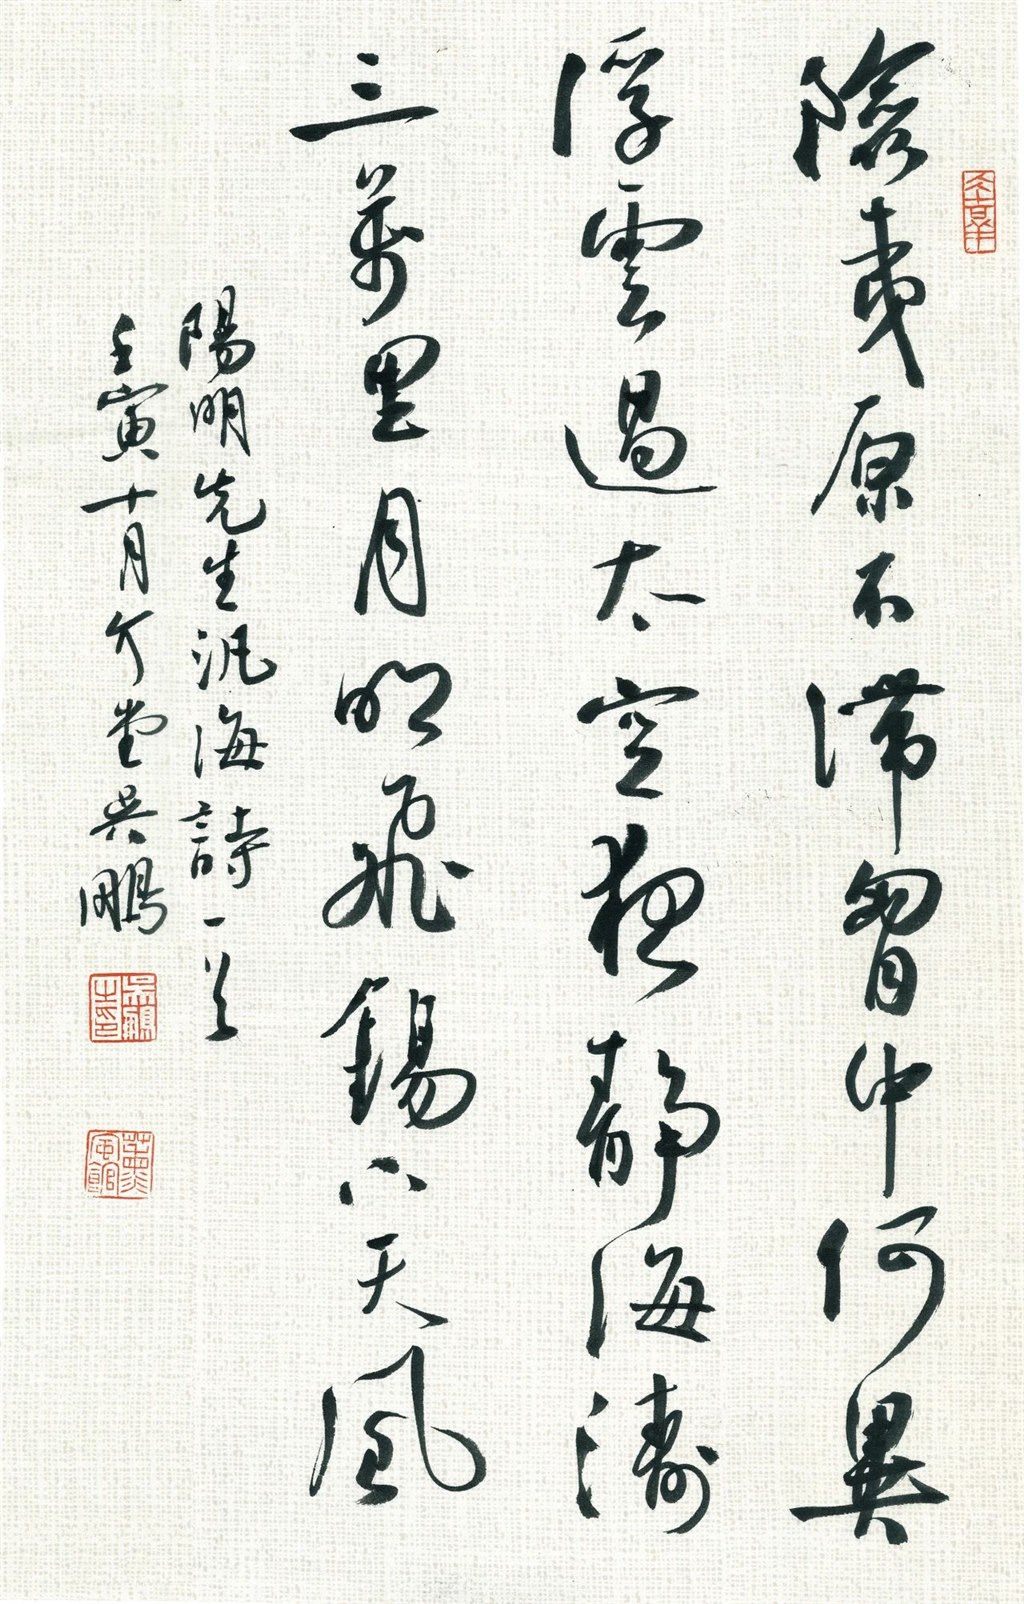 險夷原不滯胷中何異
浮雲過太空夜靜海濤
三萬里月明飛錫下天風
陽明先生汎海詩一首
壬寅十月介堂吳鵬
吳鵬之印